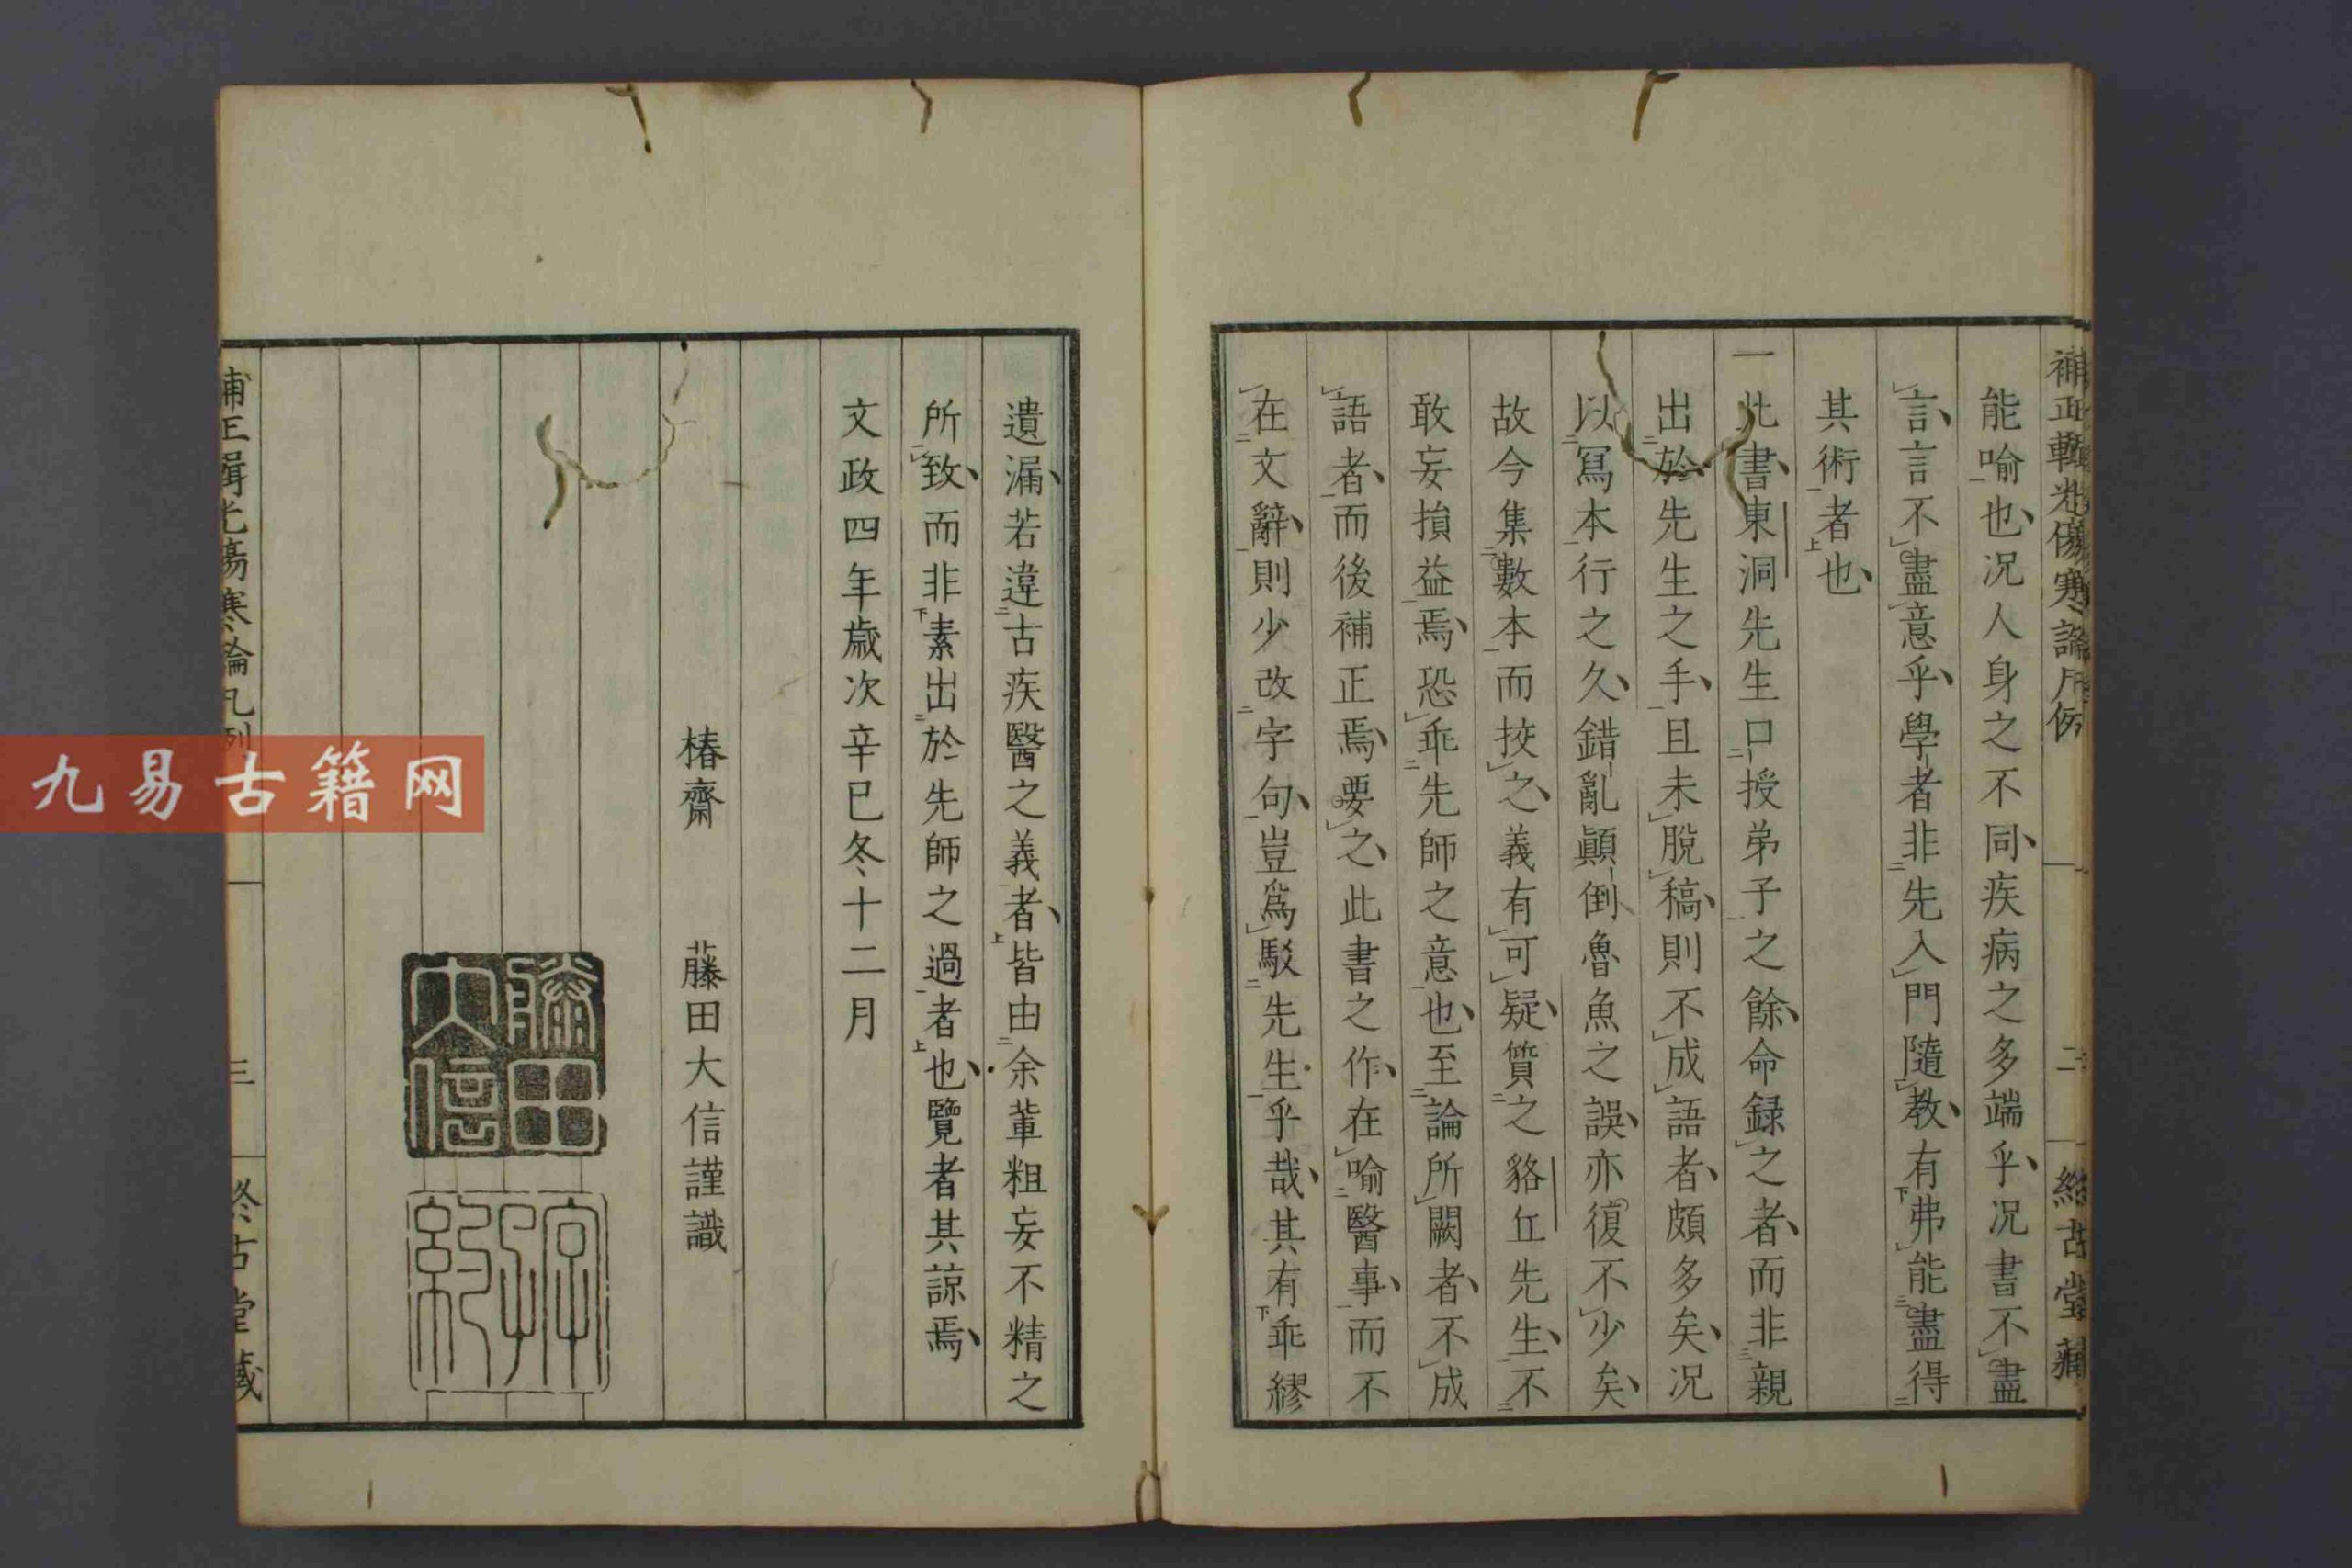 補正輯光傷寒論凡例 二 終古堂藏
能喻也况人身之不同疾病之多端乎况書不盡
言言不盡意乎學者非先入門隨教有弗能盡得
其術者也
一此書東洞先生口授弟子之餘命録之者而非親
出於先生之手且未脫稿則不成語者頗多矣况
以冩本行之久錯亂顚倒魯魚之誤亦復不少矣
故今集數本而挍之義有可疑質之貉丘先生不
敢妄損益焉恐乖先師之意也至論所闕者不成
語者而後補正焉要之此書之作在喻醫事而不
在文辭則少改字句豈爲駁先生乎哉其有乖繆
遺漏若違古疾醫之義者皆由余輩粗妄不精之
所致而非素出於先師之過者也覽者其諒焉
文政四年歲次辛巳冬十二月
椿齋 藤田大信謹識
藤田大信
補正輯光傷寒論凡例 三 終古堂藏
九易古籍网